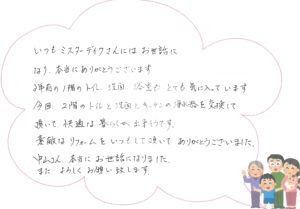 いつもミスターデイクさんには お世話に
なり、本当にありがとうございます
2年前の1階のトイレ、洗面、浴室も とても気に入っています
今回、2階のトイレと洗面とキッチンの浄水器を交換して
頂いて 快適な暮らしが 出来そうです。
素敵なリフォームをいつもして頂いて ありがとうございました。
さん、本当に お世話になりました。
また よろしくお願い致します。